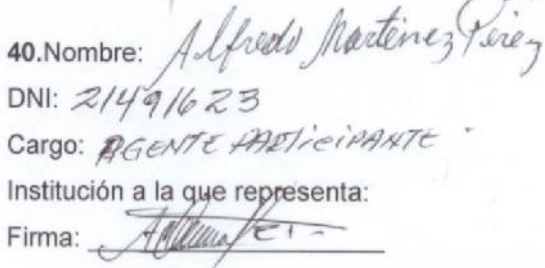 40.Nombre: Alfredo Martinez Perez
DNI: 21491623
Cargo: AGENTE PARTICIPANTE
Institución a la que representa:
Firma: